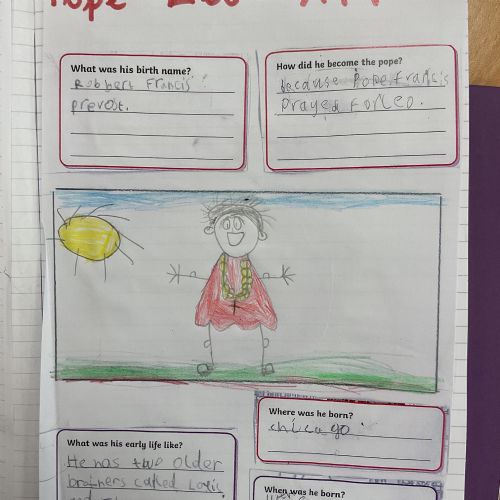 Pope Leo XIV
What was his birth name?
Robbert Francis
prevost.
How did he become the pope?
because Pope francis
Prayed for leo.
Where was he born?
chicago
What was his early life like?
He has two older
brothers called Loui
When was he born?